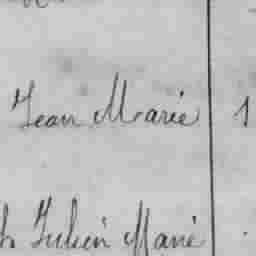 Jean Marie 1
Julien Marie